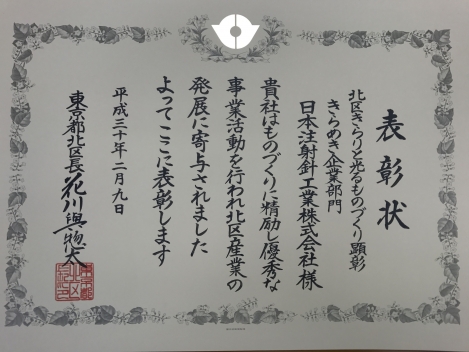 表彰状
北区きらりと光るものづくり顕彰
きらめき企業部門
日本注射針工業株式会社 様
貴社はものづくりに精励し優秀な
事業活動を行われ北区産業の
発展に寄与されました
よってここに表彰します
平成三十年二月九日
東京都北区長 花川與惣太